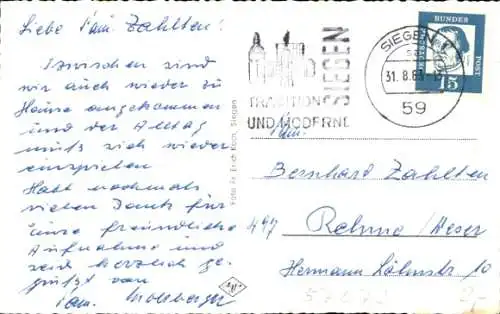 Liebe Fam. Zahlten!
Inzwischen sind
wir auch wieder zu
Hause angekommen
und der Alltag
muß sich wieder
einspielen
Habt nochmals
vielen Dank für
Eure freundliche
Aufnahme und
seid herzlich ge-
grüßt von
Fam.
Foto Fr. Erich Koch, Siegen
SIEGEN
TRADITION
UND MODERNE
SIEGEN
31.8.63
59
DEUTSCHE
BUNDES
POST
15
Fam.
Bernhard Zahlten
497 Rehme/Weser
Hermann Lönsstr. 10
2,-